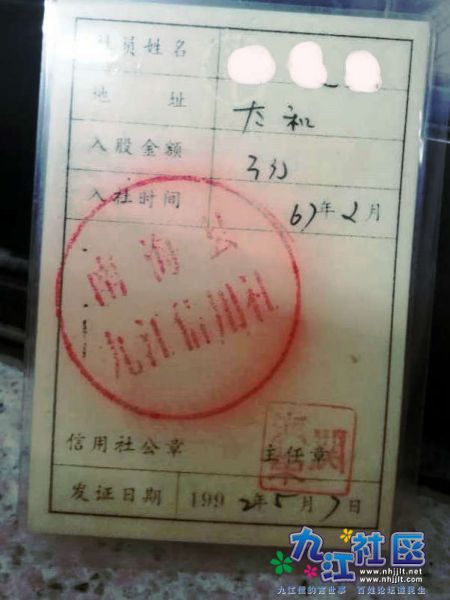 社员姓名
地 址 太和
入股金额
入社时间 67年2月
南海县
九江信用社
信用社公章 主任章
发证日期 1992年5月7日
九江社区
www.nhjjlt.net
www.nhjjlt.com
九江儒的言世事 百姓论坛道民生